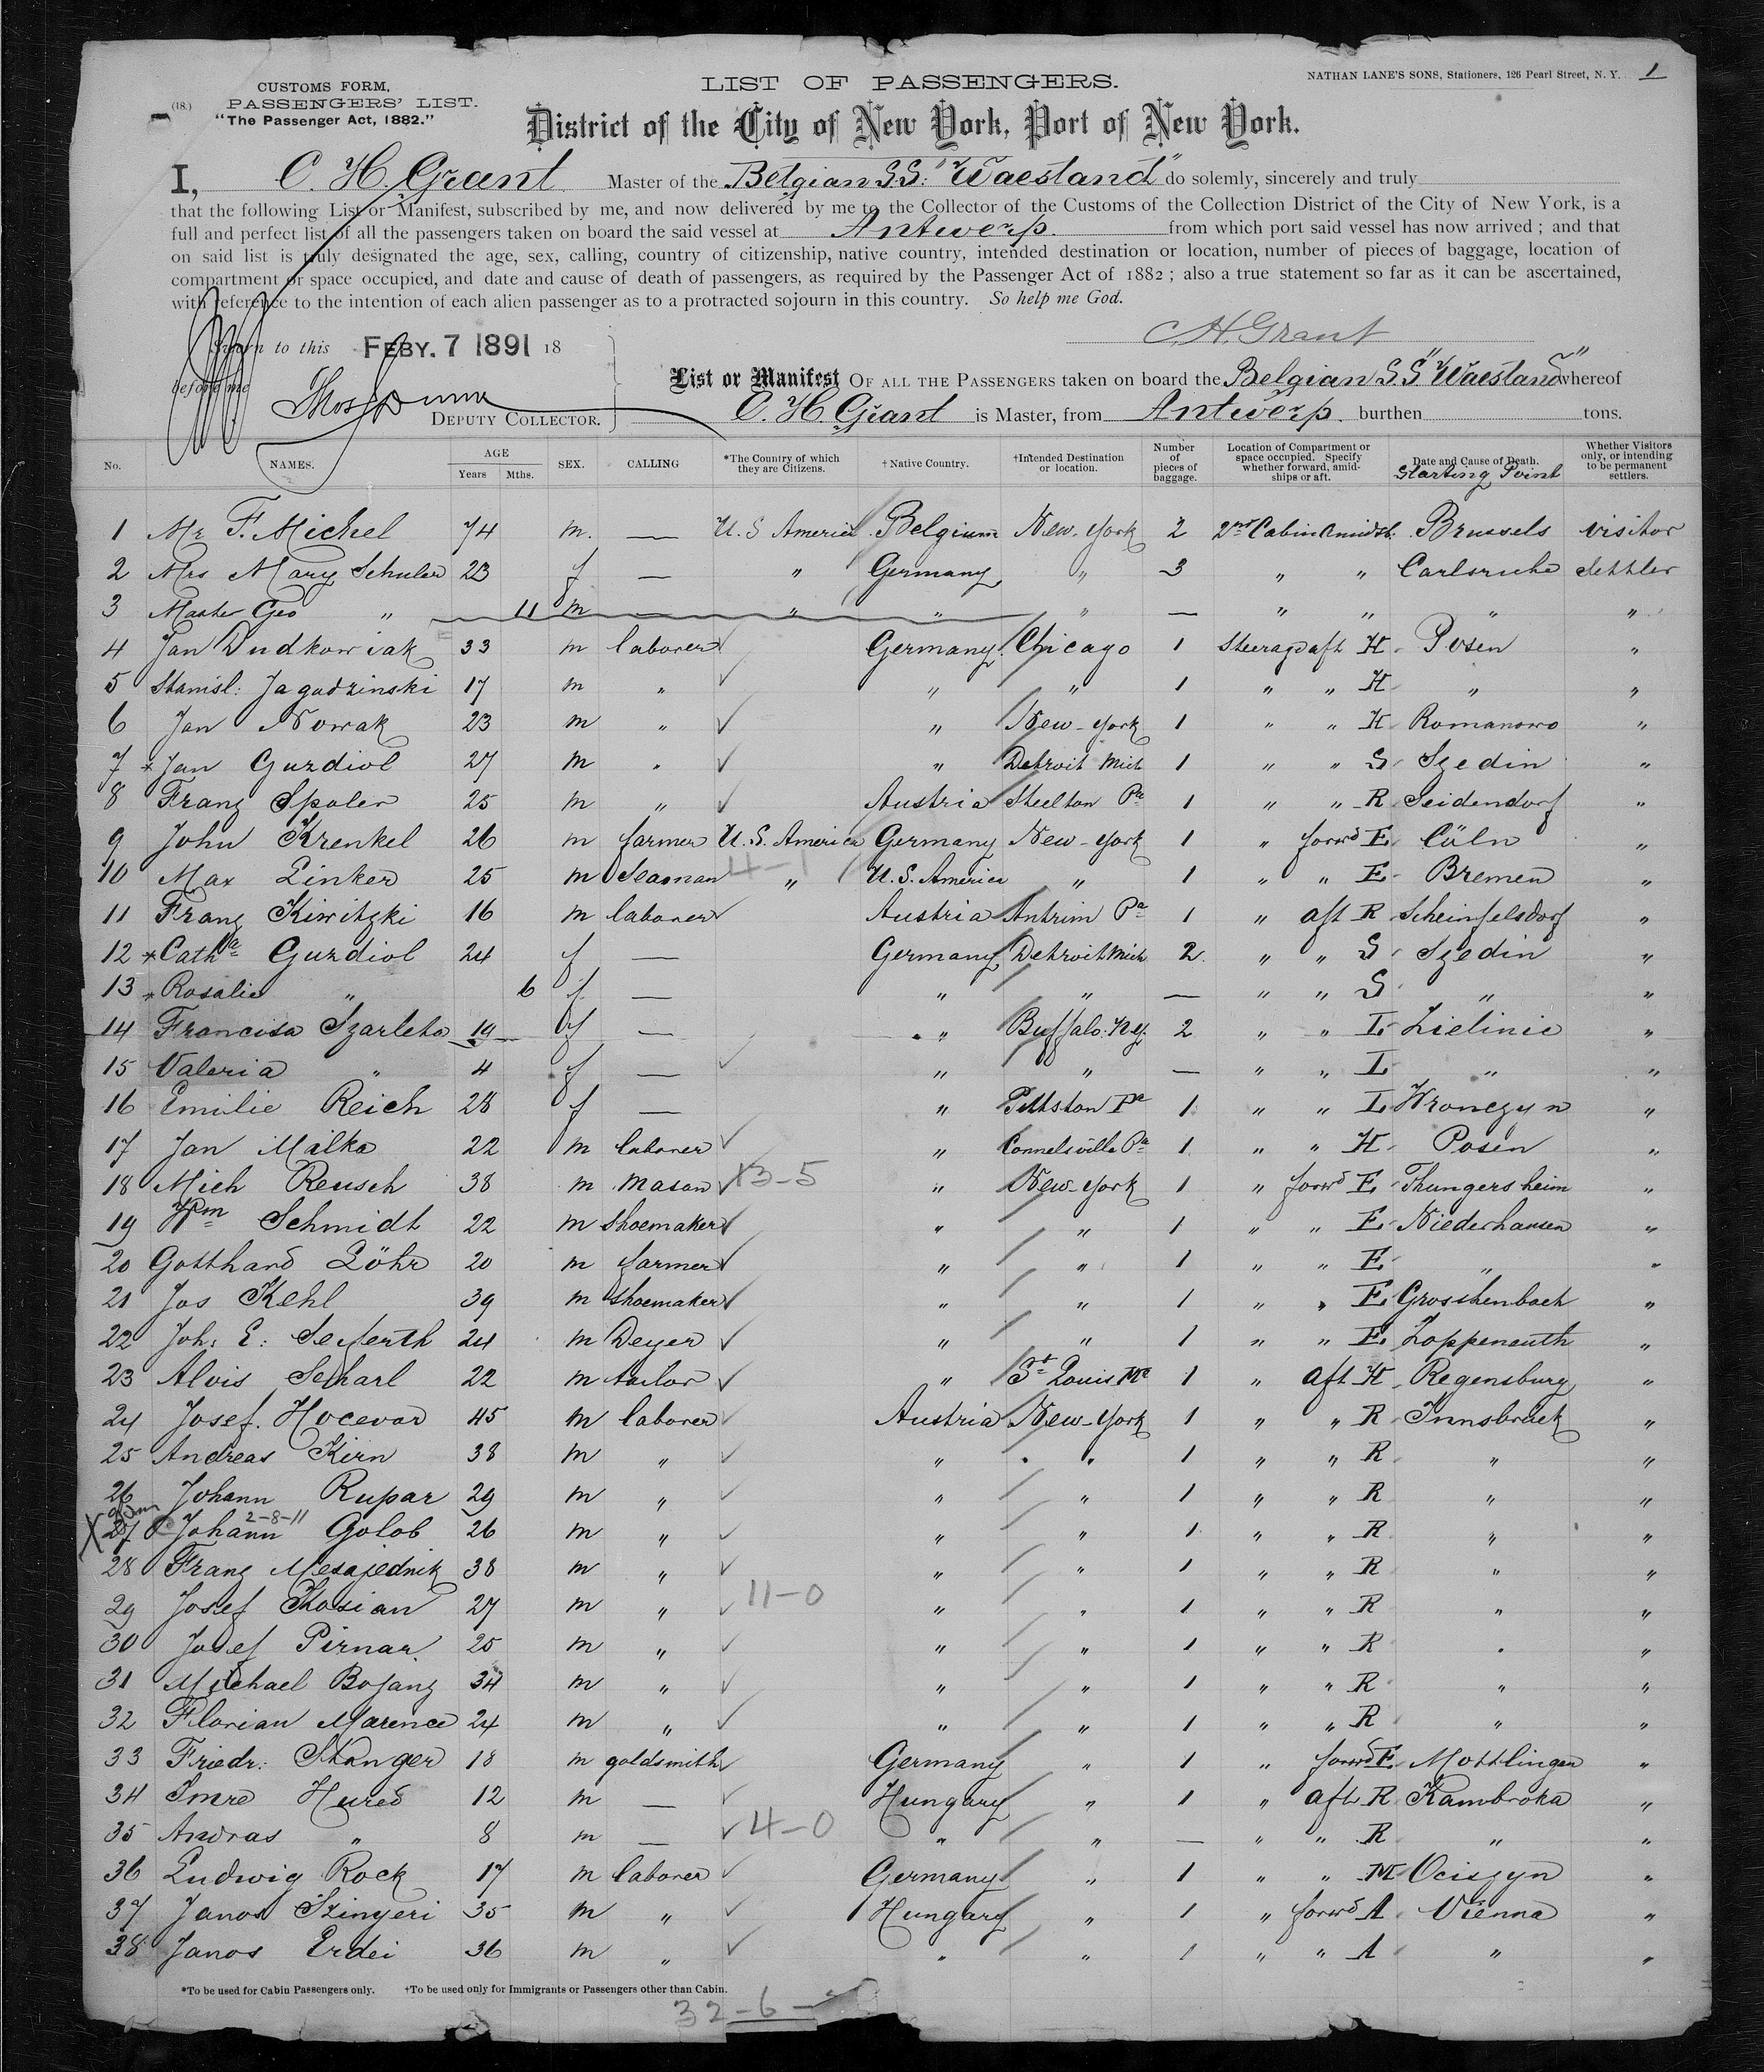 CUSTOMS FORM,
(18.) PASSENGERS' LIST.
"The Passenger Act, 1882."
LIST OF PASSENGERS.
NATHAN LANE'S SONS, Stationers, 126 Pearl Street, N. Y. 1
District of the City of New York, Port of New York.
I, C. H. Grant Master of the Belgian S.S. "Waesland" do solemnly, sincerely and truly
that the following List or Manifest, subscribed by me, and now delivered by me to the Collector of the Customs of the Collection District of the City of New York, is a
full and perfect list of all the passengers taken on board the said vessel at Antwerp. from which port said vessel has now arrived ; and that
on said list is truly designated the age, sex, calling, country of citizenship, native country, intended destination or location, number of pieces of baggage, location of
compartment or space occupied, and date and cause of death of passengers, as required by the Passenger Act of 1882 ; also a true statement so far as it can be ascertained,
with reference to the intention of each alien passenger as to a protracted sojourn in this country. So help me God.
C. H. Grant
Sworn to this FEBY. 7 1891 18
before me
Thos Dunn
DEPUTY COLLECTOR.
List or Manifest OF ALL THE PASSENGERS taken on board the Belgian S.S "Waesland" whereof
C. H. Grant is Master, from Antwerp. burthen tons.
No. NAMES. AGE Years Mths. SEX. CALLING *The Country of which they are Citizens. †Native Country. †Intended Destination or location. Number of pieces of baggage. Location of Compartment or space occupied. Specify whether forward, amid-ships or aft. Date and Cause of Death. Starting Point Whether Visitors only, or intending to be permanent settlers.
1 Mr F. Michel 74 m. — U. S America Belgium New-York 2 2nd Cabin Amidsh: Brussels visitor
2 Mrs Mary Schuler 23 f — " Germany " 3 " " Carlsruhe settler
3 Master Geo " 11 m — " " " — " " " "
4 Jan Dudkowiak 33 m laborer Germany Chicago 1 Steerage aft H Posen "
5 Stanisl: Jagodzinski 17 m " " " 1 " " H " "
6 Jan Nowak 23 m " " New-York 1 " " H Romanowo "
7 * Jan Gurdiol 27 m " " Detroit Mich 1 " " S Szedin "
8 Franz Spoler 25 m " Austria Steelton Pa 1 " " R Seidendorf "
9 John Krenkel 26 m farmer U. S. America Germany New-York 1 " forwd E Cöln "
10 Max Linker 25 m Seaman 4-1 " U. S. America " 1 " " E Bremen "
11 Franz Kiwitzki 16 m laborer Austria Antrim Pa 1 " aft R Scheinfelsdorf "
12 * Catha Gurdiol 24 f — Germany Detroit Mich 2 " " S Szedin "
13 * Rosalie " 6 f — " " — " " S " "
14 Francisa Szarleta 19 f — " Buffalo. N.y. 2 " " L Zielinic "
15 Valeria " 4 f — " " — " " L " "
16 Emilie Reich 28 f — " Pittston Pa 1 " " L Wronczyn "
17 Jan Malka 22 m laborer " Connelsville Pa 1 " " H Posen "
18 Mich Reusch 38 m mason 13-5 " New-York 1 " forwd E Thungersheim "
19 Wm Schmidt 22 m shoemaker " " 1 " " E Niederhausen "
20 Gotthard Löhr 20 m farmer " " 1 " " E " "
21 Jos Kehl 39 m shoemaker " " 1 " " E Grosshenbach "
22 Joh: E: Seyferth 24 m Deyer " " 1 " " E Loppenauth "
23 Alois Scharl 22 m tailor " St Louis Mo 1 " aft H Regensburg "
24 Josef. Hocevar 45 m laborer Austria New-York 1 " " R Innsbruck "
25 Andreas Kirn 38 m " " " 1 " " R " "
26 Johann Rupar 29 m " " " 1 " " R " "
2-8-11
X 27 Johann Golob 26 m " " " 1 " " R " "
28 Franz Mesajednik 38 m " " " 1 " " R " "
29 Josef Kosian 27 m " 11-0 " " 1 " " R " "
30 Josef Pirnar 25 m " " " 1 " " R " "
31 Michael Bojanz 34 m " " " 1 " " R " "
32 Florian Marence 24 m " " " 1 " " R " "
33 Friedr: Stanger 18 m goldsmith Germany " 1 " forwd E Mottlingen "
34 Imre Hured 12 m — Hungary " 1 " aft R Kambroka "
35 Andras " 8 m — 4-0 " " — " " R " "
36 Ludwig Rock 17 m laborer Germany " 1 " " M Ociszyn "
37 Janos Szinyeri 35 m " Hungary " 1 " forwd A Vienna "
38 Janos Erdei 36 m " " " 1 " " A " "
*To be used for Cabin Passengers only. †To be used only for Immigrants or Passengers other than Cabin.
32-6-